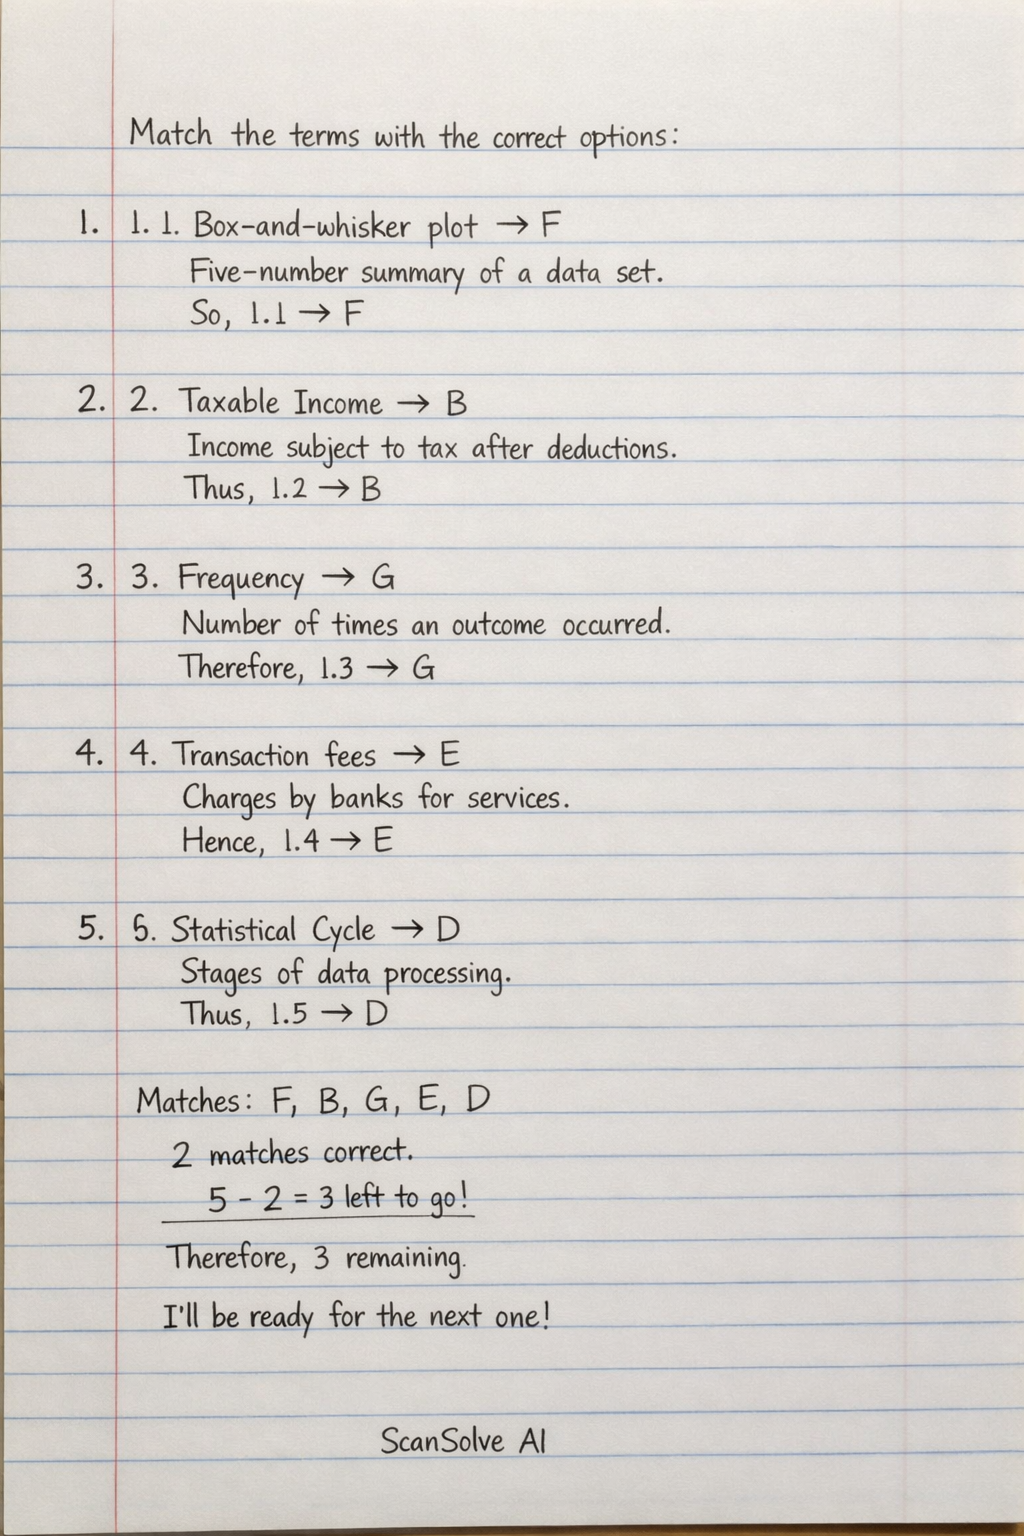 Match the terms with the correct options:
1. 1. 1. Box-and-whisker plot → F
Five-number summary of a data set.
So, 1.1 → F
2. 2. Taxable Income → B
Income subject to tax after deductions.
Thus, 1.2 → B
3. 3. Frequency → G
Number of times an outcome occurred.
Therefore, 1.3 → G
4. 4. Transaction fees → E
Charges by banks for services.
Hence, 1.4 → E
5. 5. Statistical Cycle → D
Stages of data processing.
Thus, 1.5 → D
Matches: F, B, G, E, D
2 matches correct.
5 - 2 = 3 left to go!
Therefore, 3 remaining.
I'll be ready for the next one!
ScanSolve AI